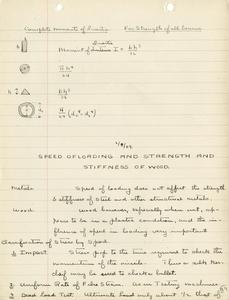 Complete moments of Inertia For Strength of all beams
Inertia
Moment of Inertia I = bh³
12
πd⁴
64
bh³
36
π
64 (d⁴ - d₁⁴)
SPEED OF LOADING AND STRENGTH AND
STIFFNESS OF WOOD.
Metals Speed of loading does not affect the strength
& stiffness of steel and other structural metals.
Wood Wood however, especially when wet, ap-
pears to be in a plastic condition, and the in-
fluence of speed in loading very important
Classification of Stress by Speed.
1 Impact. Stress prop to the time required to check the
momentum of the missile.
may be used to check a bullet.
2 Uniform Rate of Fibre Strain. As in Testing machines
3 Dead Load Test. Ultimate load only about ½ that of